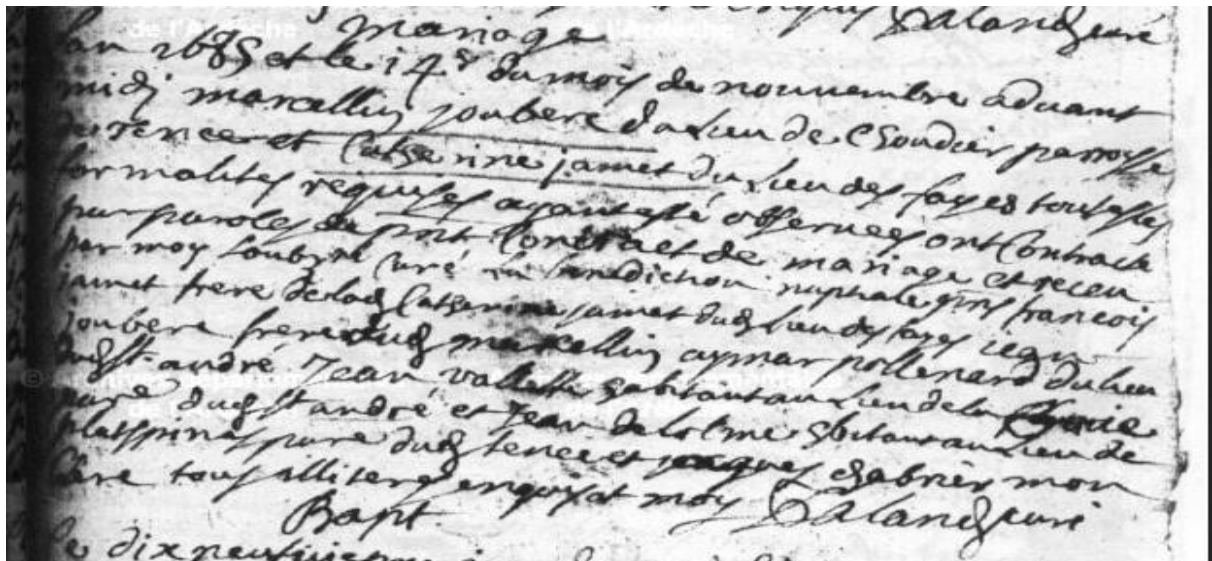 enquis Valand curé
mariage
Lan 1685 et le 14e du mois de nouuembre aduant
midj marcellin joubert du Lieu de Choudier parroisse
de tence et Catherine jamet du Lieu des fayes toutes les
formalites requises ayant esté obseruees ont Contracte
par paroles de pnt Contract de mariage et receu
par moy soubzne Curé La benediction nuptiale pnts francois
jamet frere de lad Catherine jamet dud Lieu des fayes jean
joubert frere dud marcellin aymar pollenard du lieu
dud st andré Jean vallette habitant au Lieu de la
pare dud st andré et Jean delolme habitant au Lieu de
plat pare dud tence et jacques chabrier mon
Clerc tous illiteres enquis et moy Valand curé
Bapt
le dix neufuiesme